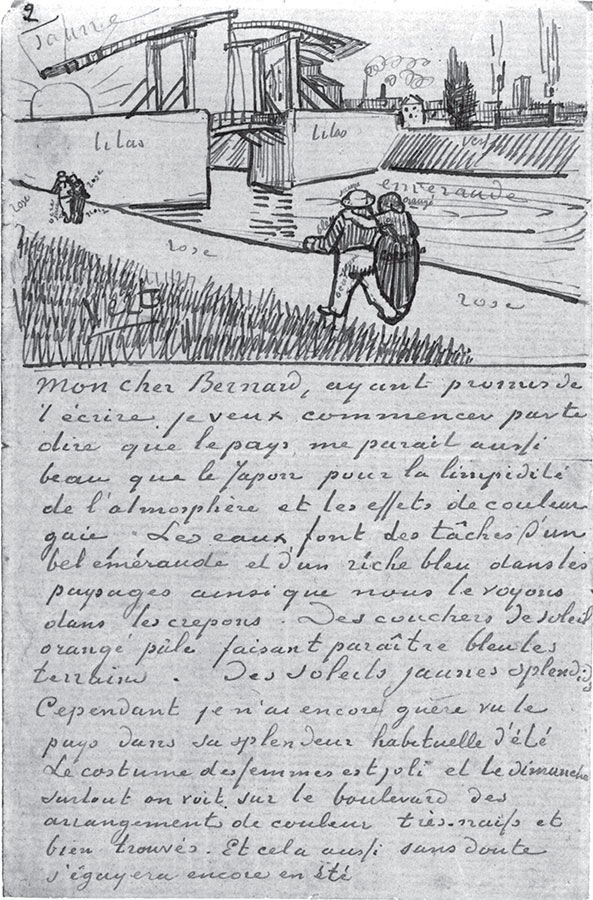 2
Jaune
lilas
lilas
vert
rose
noir
rose
ocre
emeraude
orangé
jaune
rose
rose
vert
Mon cher Bernard, ayant promis de
t'écrire je veux commencer par te
dire que le pays me parait aussi
beau que le Japon pour la limpidité
de l'atmosphère et les effets de couleur
gaie. Les eaux font des tâches d'un
bel eméraude et d'un riche bleu dans les
paysages ainsi que nous le voyons
dans les crepons. Des couchers de soleil
orangé pâle faisant paraître bleu les
terrains. Des soleils jaunes splendides
Cependant je n'ai encore guère vu le
pays dans sa splendeur habituelle d'été
Le costume des femmes est joli et le dimanche
surtout on voit sur le boulevard des
arrangements de couleur très-naifs et
bien trouvés. Et cela aussi sans doute
s'égayera encore en été